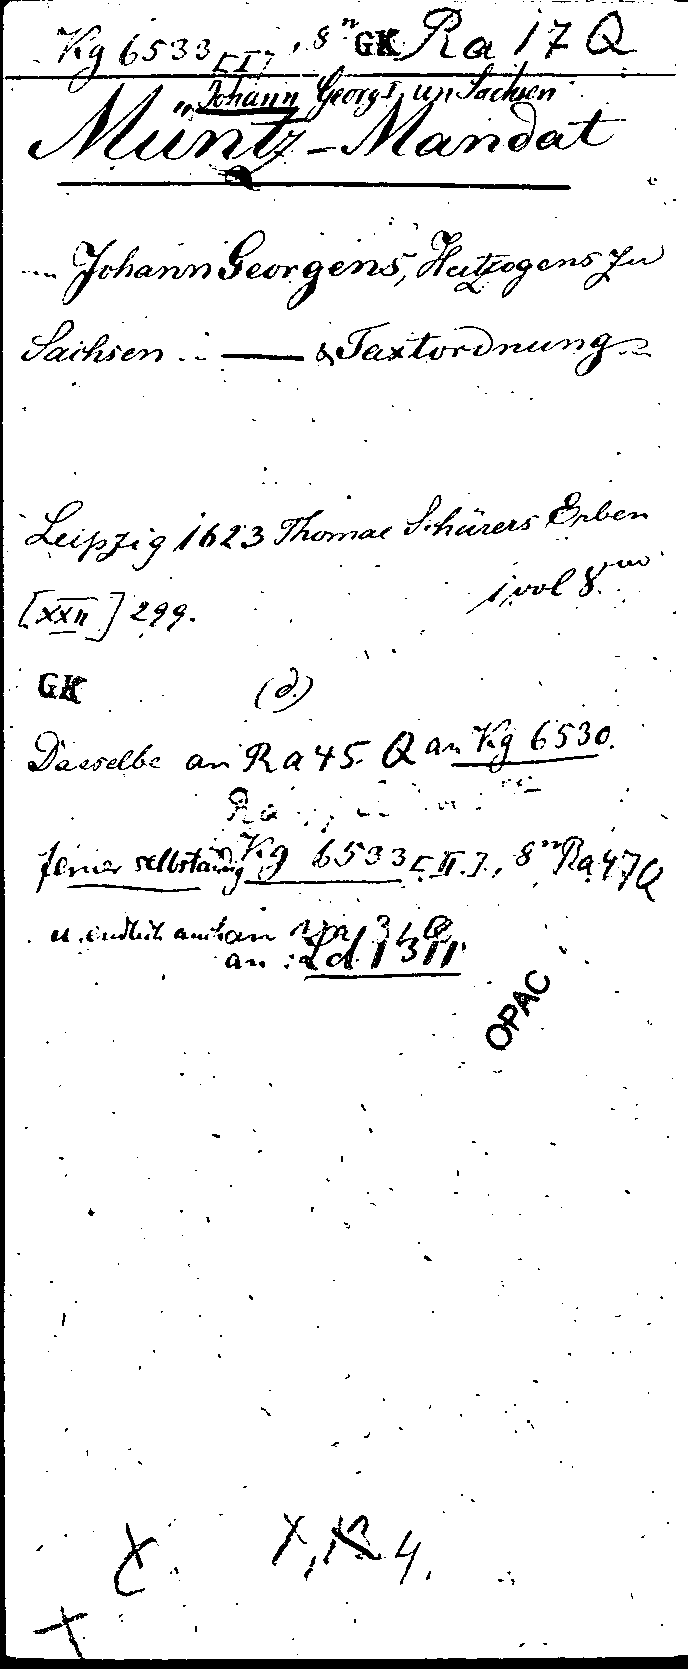 Kg 6533 [I], 8n GK Ra 17 Q
„Johann Georgs, Sachsen
Müntz-Mandat
... Johann Georgens, Hertzogens zu
Sachsen .. — & Taxtordnung..
Leipzig 1623 Thomae Schürers Erben
1 vol 8vo
[XXII] 299.
GK (d.)
Dasselbe an Ra 45. Q an Kg 6530.
Ra
ferner selbständig Kg 6533 [II.], 8n Ra 47Q
u. endlich auch an
an
OPAC
4.